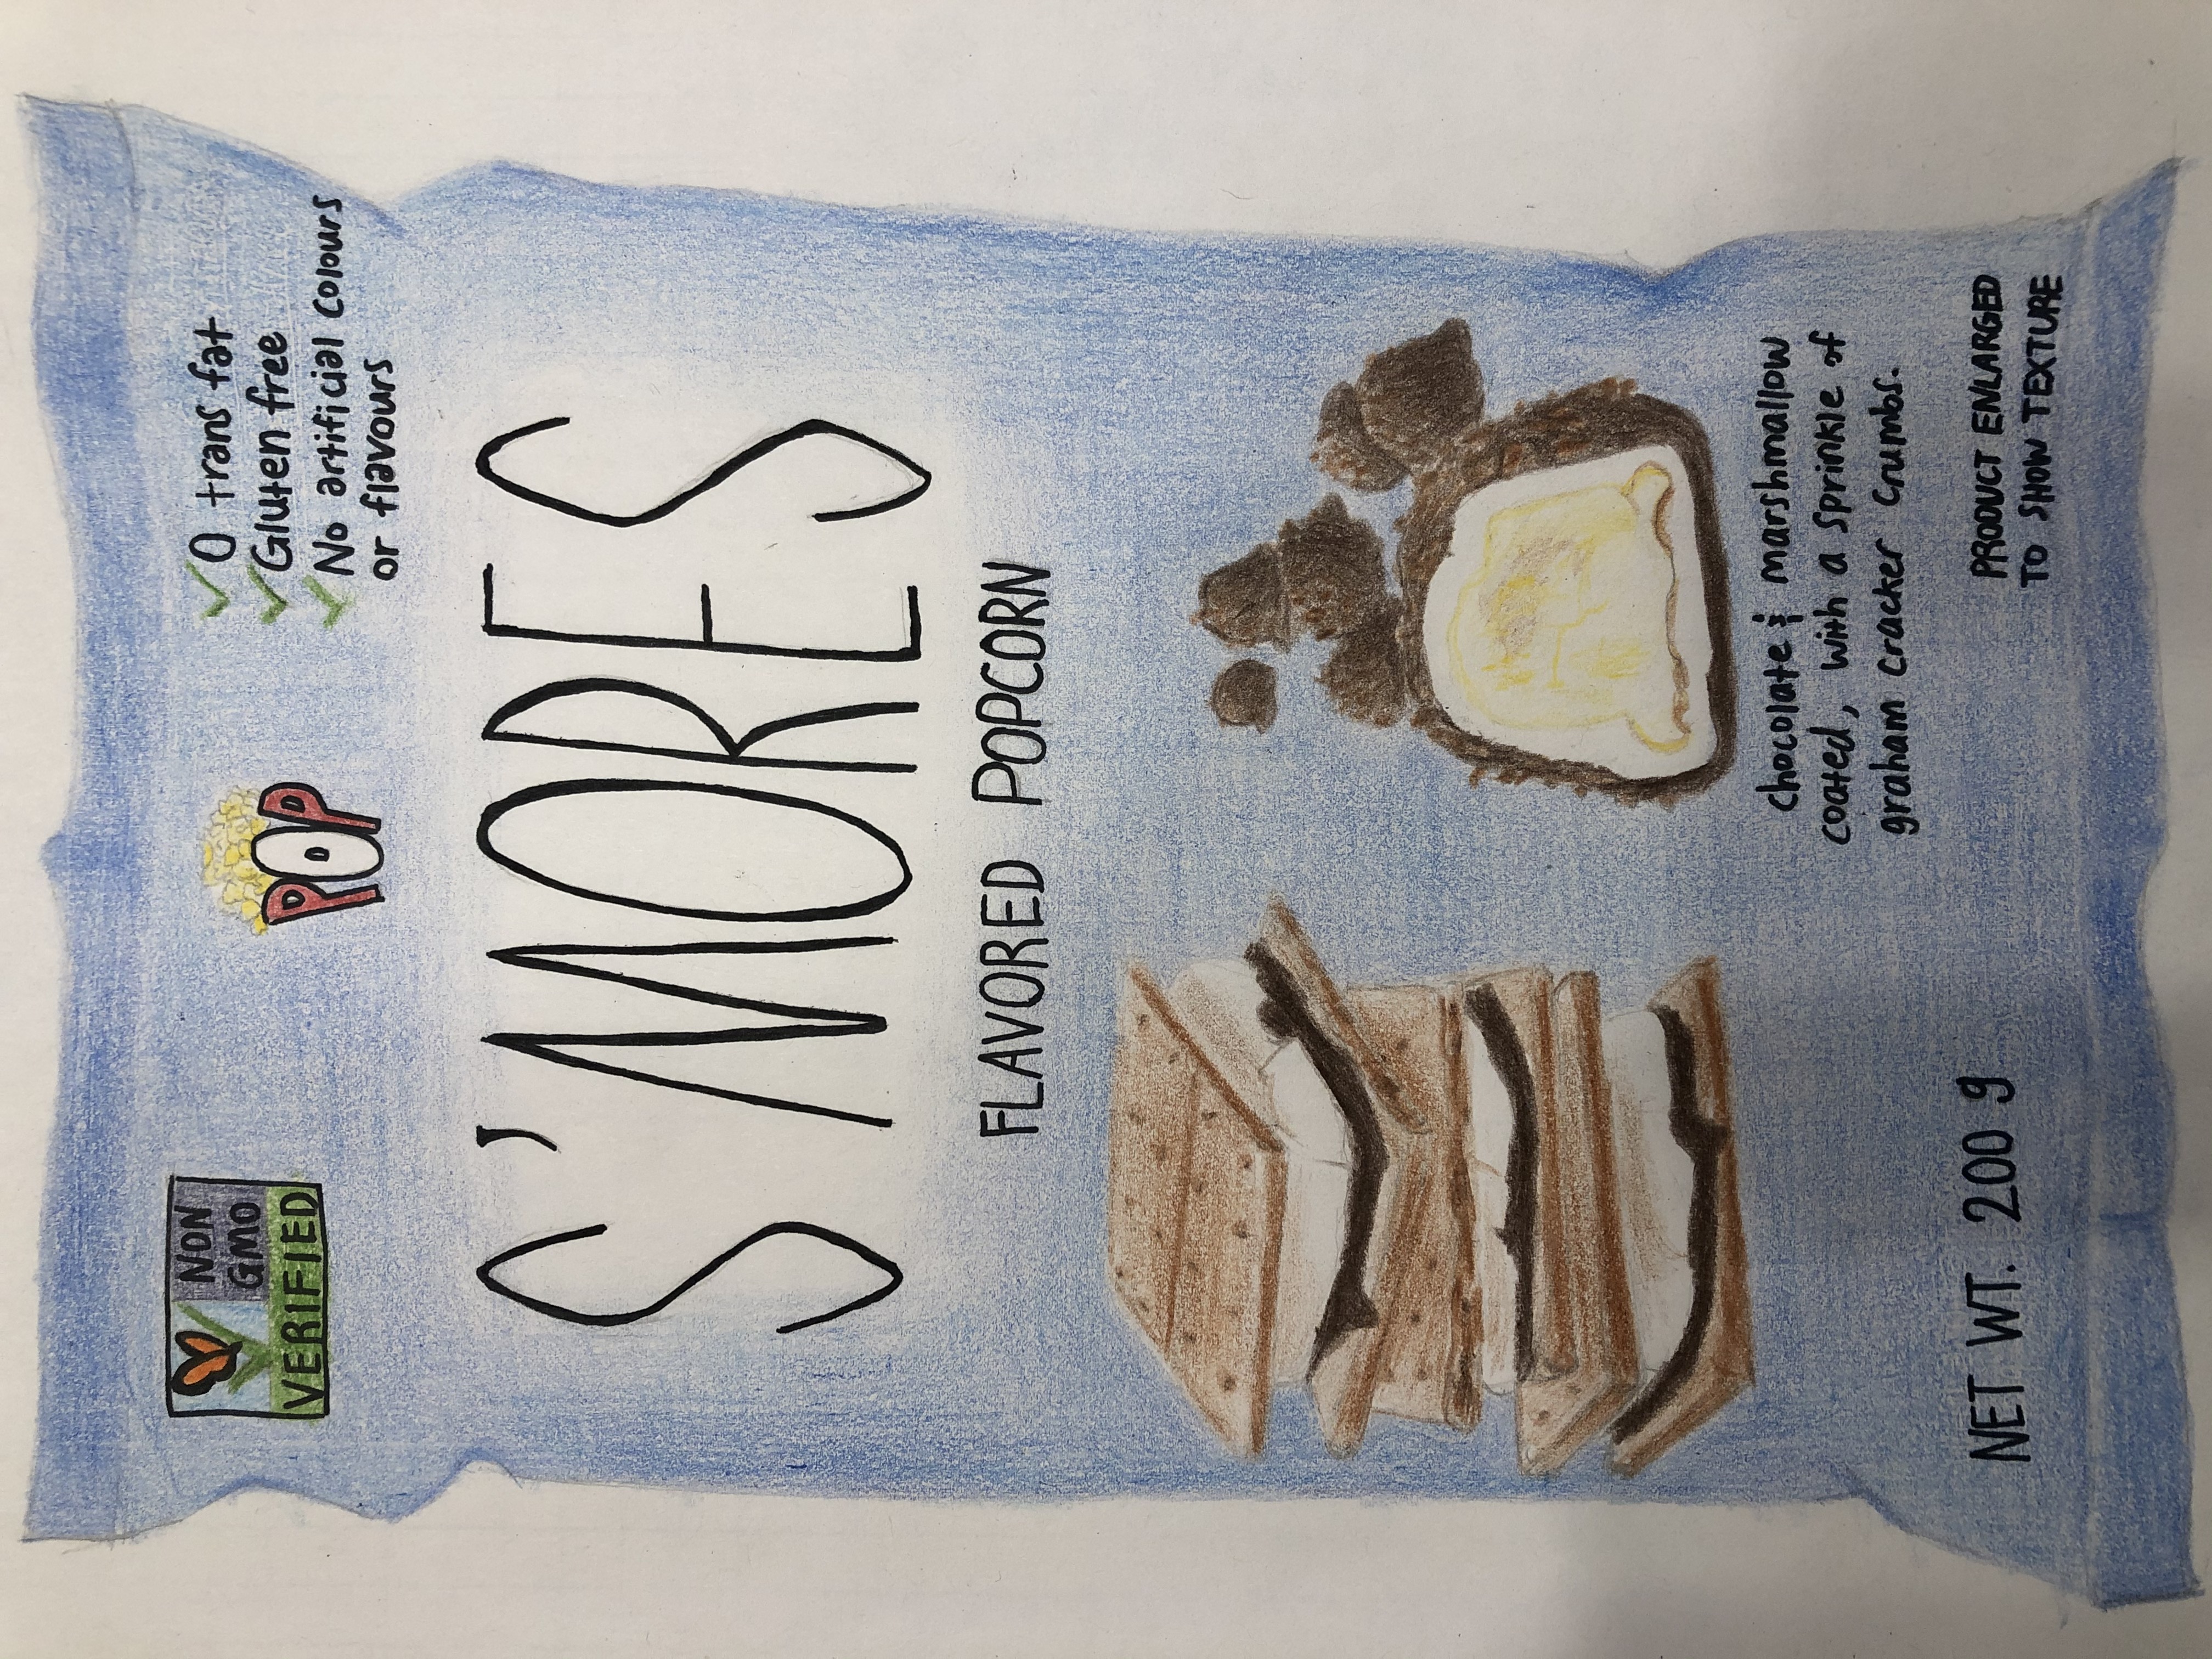 NON
GMO
VERIFIED
POP
0 trans fat
Gluten free
No artificial colours
or flavours
S'MORES
FLAVORED POPCORN
chocolate & marshmallow
coated, with a sprinkle of
graham cracker crumbs.
NET WT. 200 g
PRODUCT ENLARGED
TO SHOW TEXTURE